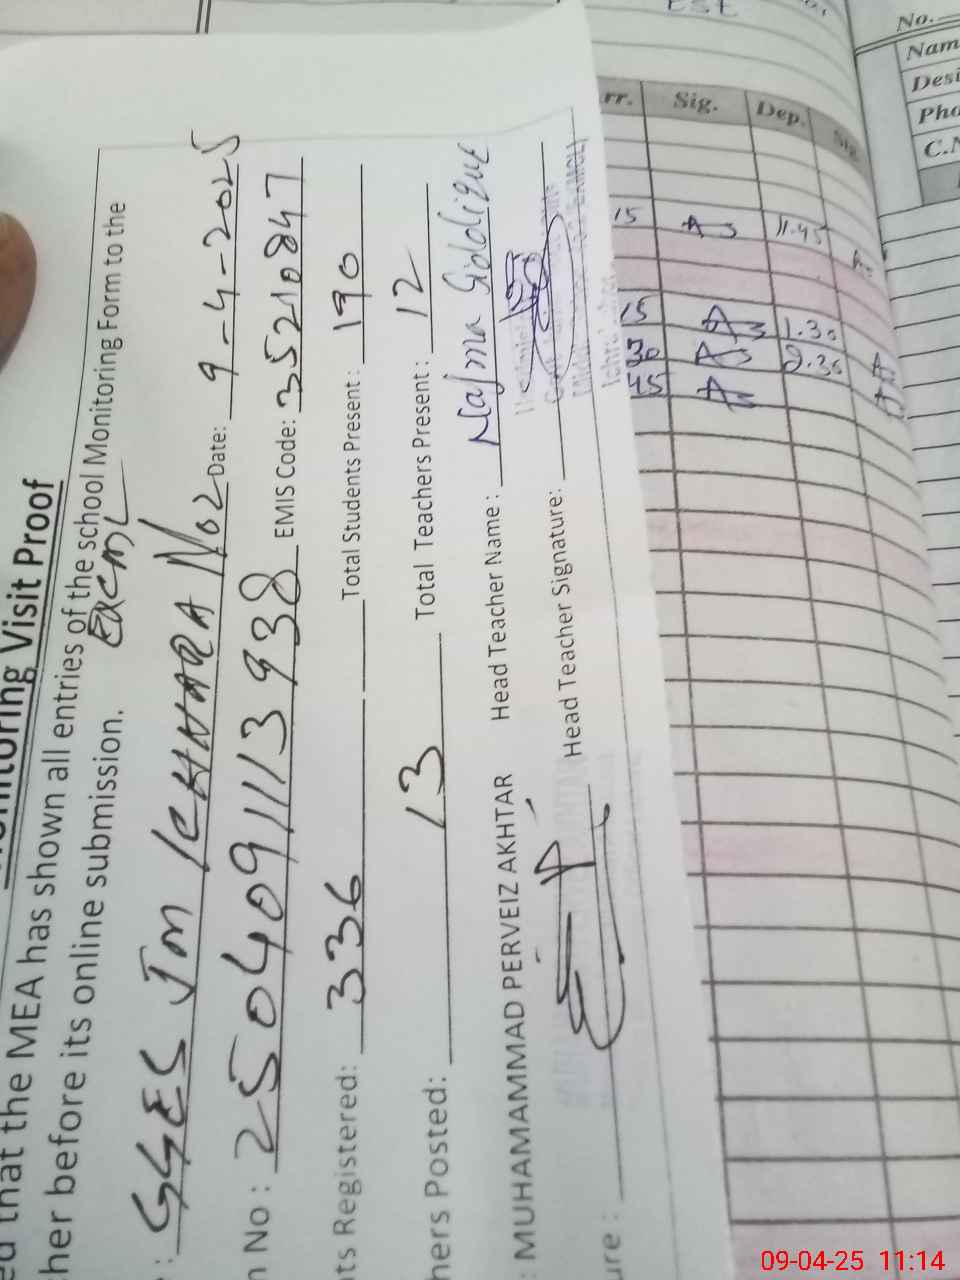 Monitoring Visit Proof
ed that the MEA has shown all entries of the school Monitoring Form to the
her before its online submission.
: GGES Jm ICHHARA No2 Date: 9-4-2025
n No: 25040911113938 EMIS Code: 35210847
ts Registered: 336 Total Students Present: 190
hers Posted: 13 Total Teachers Present: 12
: MUHAMAMMAD PERVEIZ AKHTAR Head Teacher Name: Najma Siddique
ure: Head Teacher Signature:
rr. Sig. Dep. Sig.
15 As 11.45
15 As 1.30
30 As 2.30
45 As
No.
Nam
Desi
Pho
C.N
09-04-25 11:14